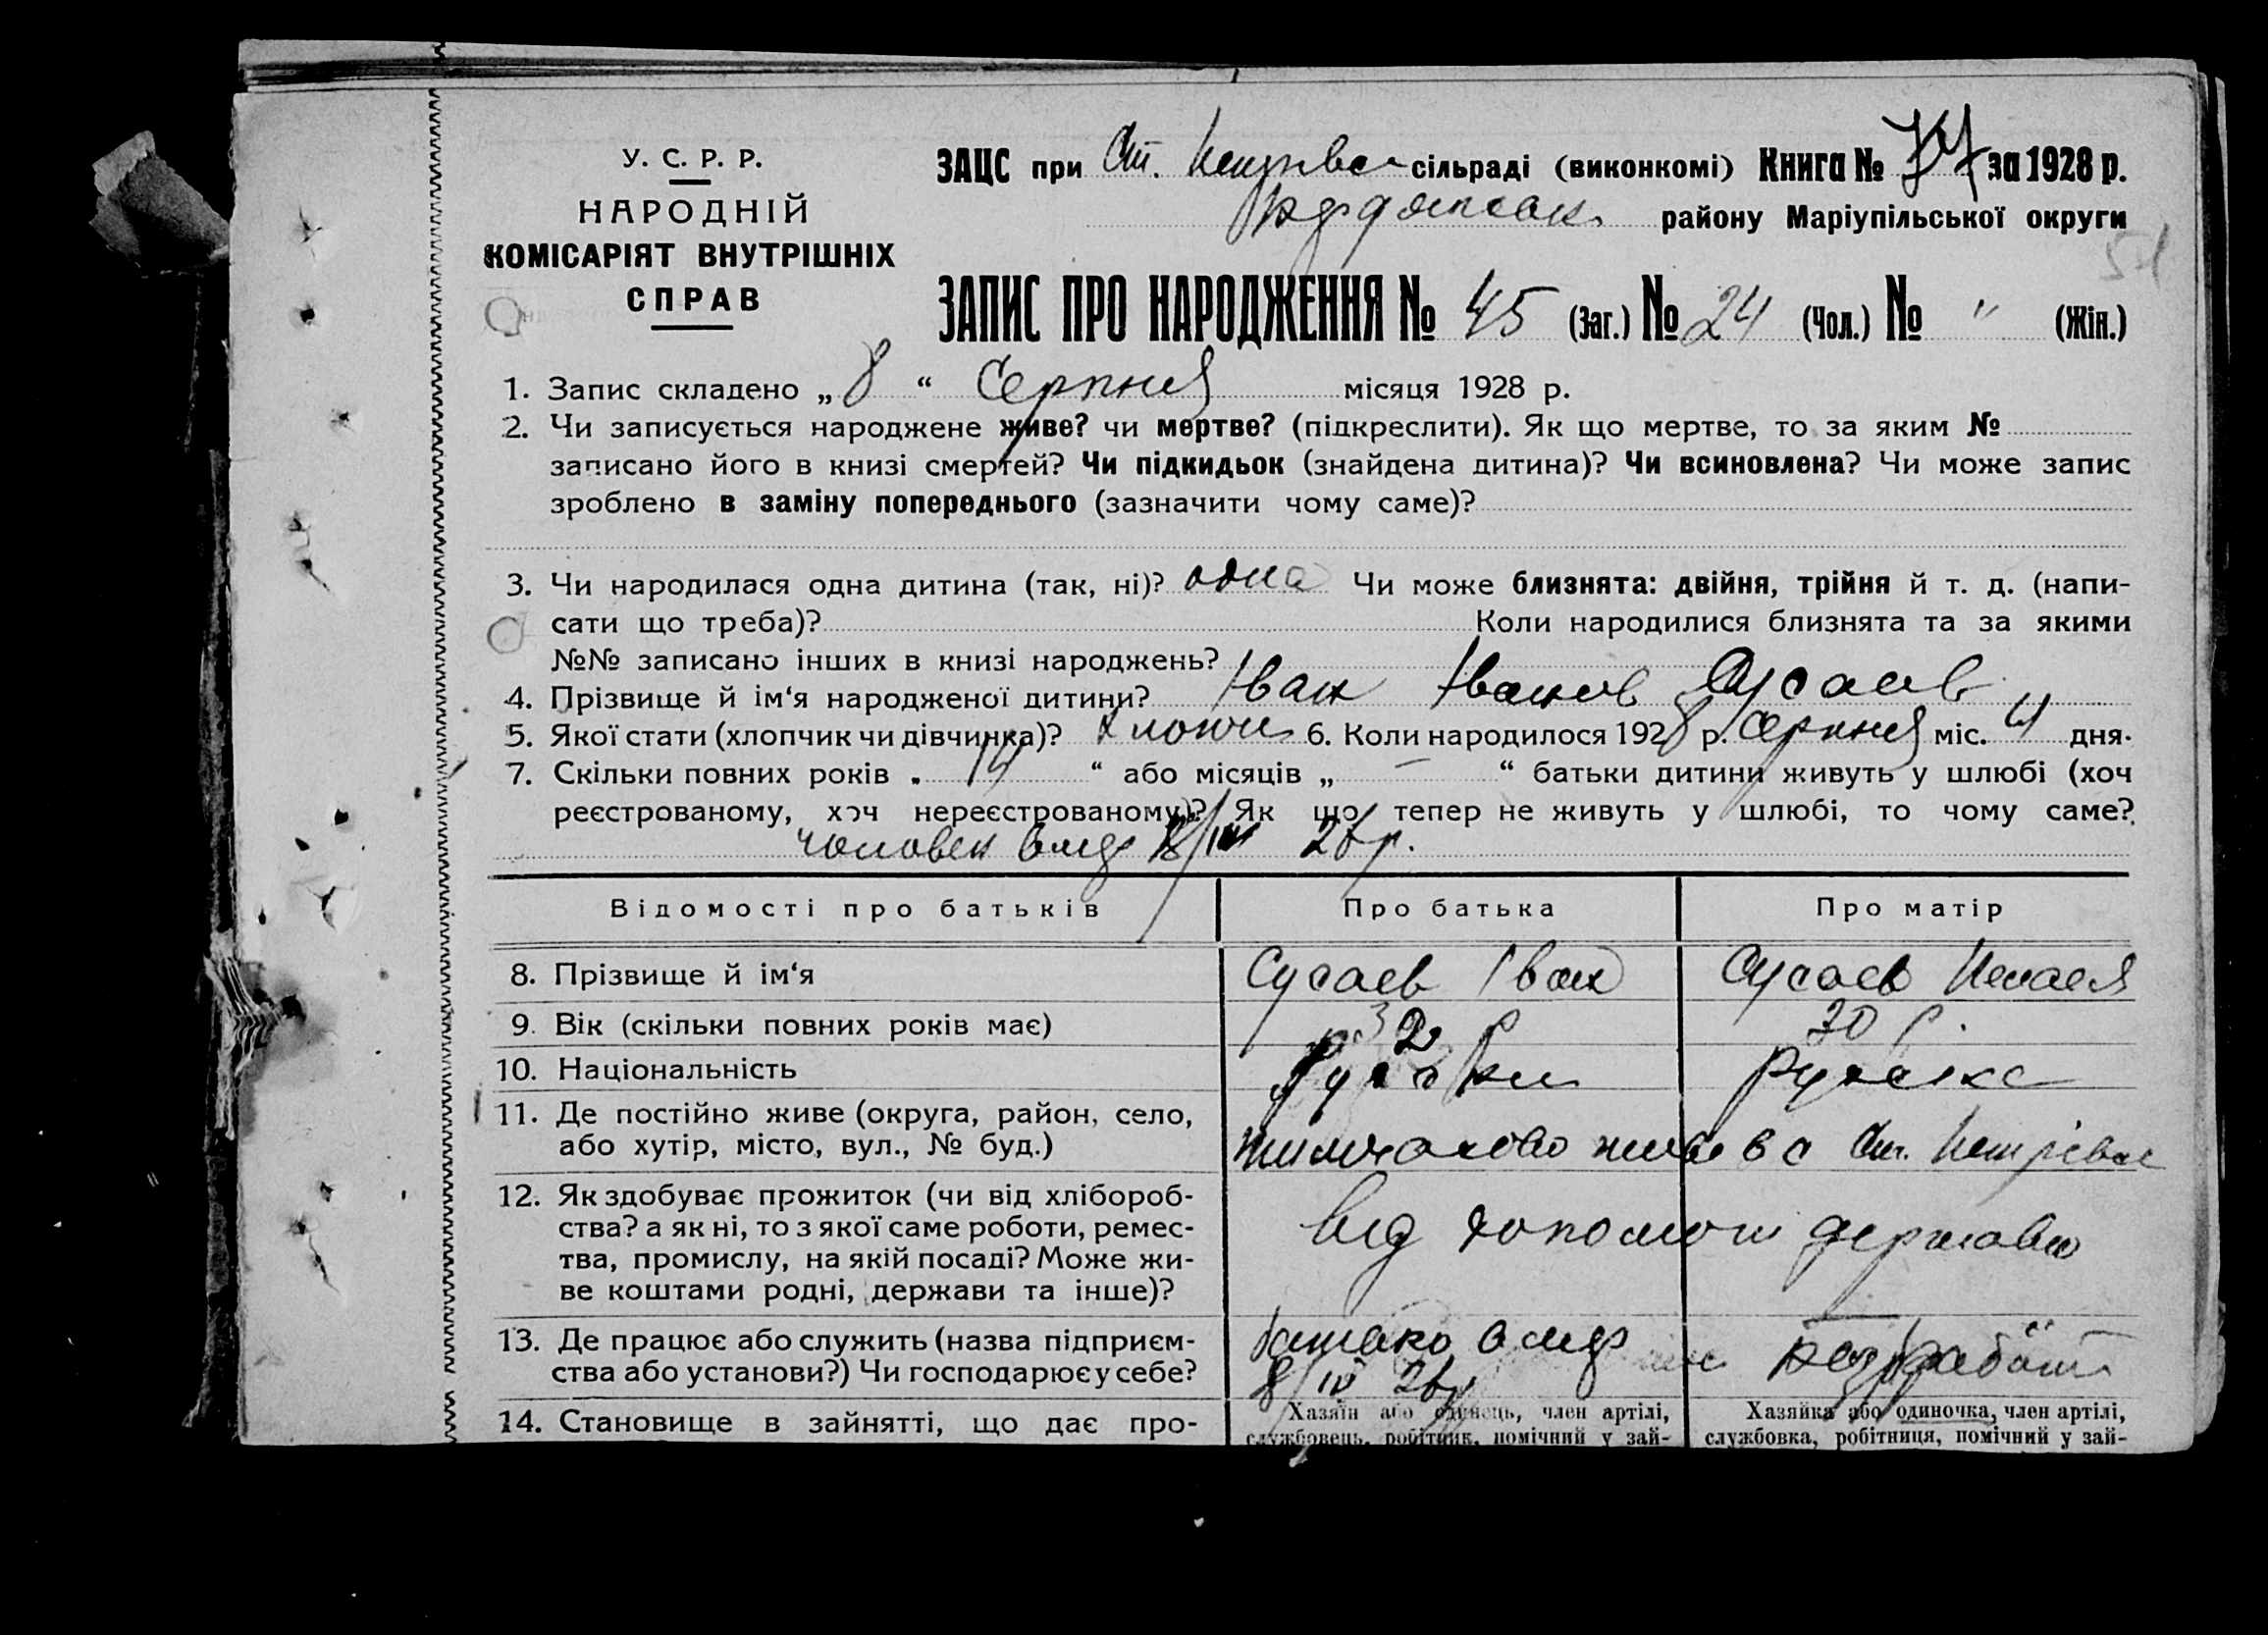 У. С. Р. Р.
НАРОДНІЙ
КОМІСАРІЯТ ВНУТРІШНІХ
СПРАВ
ЗАЦС при Ст. сільраді (виконкомі) Книга № за 1928 р.
району Маріупільської округи
51
ЗАПИС ПРО НАРОДЖЕННЯ № 45 (Заг.) № 24 (Чол.) № " (Жін.)
1. Запис складено „ 8 “ Серпня місяця 1928 р.
2. Чи записується народжене живе? чи мертве? (підкреслити). Як що мертве, то за яким №
записано його в книзі смертей? Чи підкидьок (знайдена дитина)? Чи всиновлена? Чи може запис
зроблено в заміну попереднього (зазначити чому саме)?
3. Чи народилася одна дитина (так, ні)? одна Чи може близнята: двійня, трійня й т. д. (напи-
сати що треба)? Коли народилися близнята та за якими
№№ записано інших в книзі народжень?
4. Прізвище й ім‘я народженої дитини? Іван Іванов Сусаев
5. Якої стати (хлопчик чи дівчинка)? 6. Коли народилося 1928 р. Серпня міс. 4 дня.
7. Скільки повних років „ 14 “ або місяців „ — “ батьки дитини живуть у шлюбі (хоч
реєстрованому, хоч нереєстрованому)? Як що тепер не живуть у шлюбі, то чому саме?
человек
Відомості про батьків Про батька Про матір
8. Прізвище й ім‘я Сусаев Іван Сусаев
9. Вік (скільки повних років має) 32 30
10. Національність
11. Де постійно живе (округа, район, село,
або хутір, місто, вул., № буд.) живе в с Ст.
12. Як здобуває прожиток (чи від хлібороб-
ства? а як ні, то з якої саме роботи, ремес-
тва, промислу, на якій посаді? Може жи-
ве коштами родні, держави та інше)?
Від допомоги держави
13. Де працює або служить (назва підприєм-
ства або установи?) Чи господарює у себе?
14. Становище в зайнятті, що дає про-
Хазяїн або одинець, член артілі,
службовець, робітник, помічний у зай-
Хазяйка або одиночка, член артілі,
службовка, робітниця, помічний у зай-